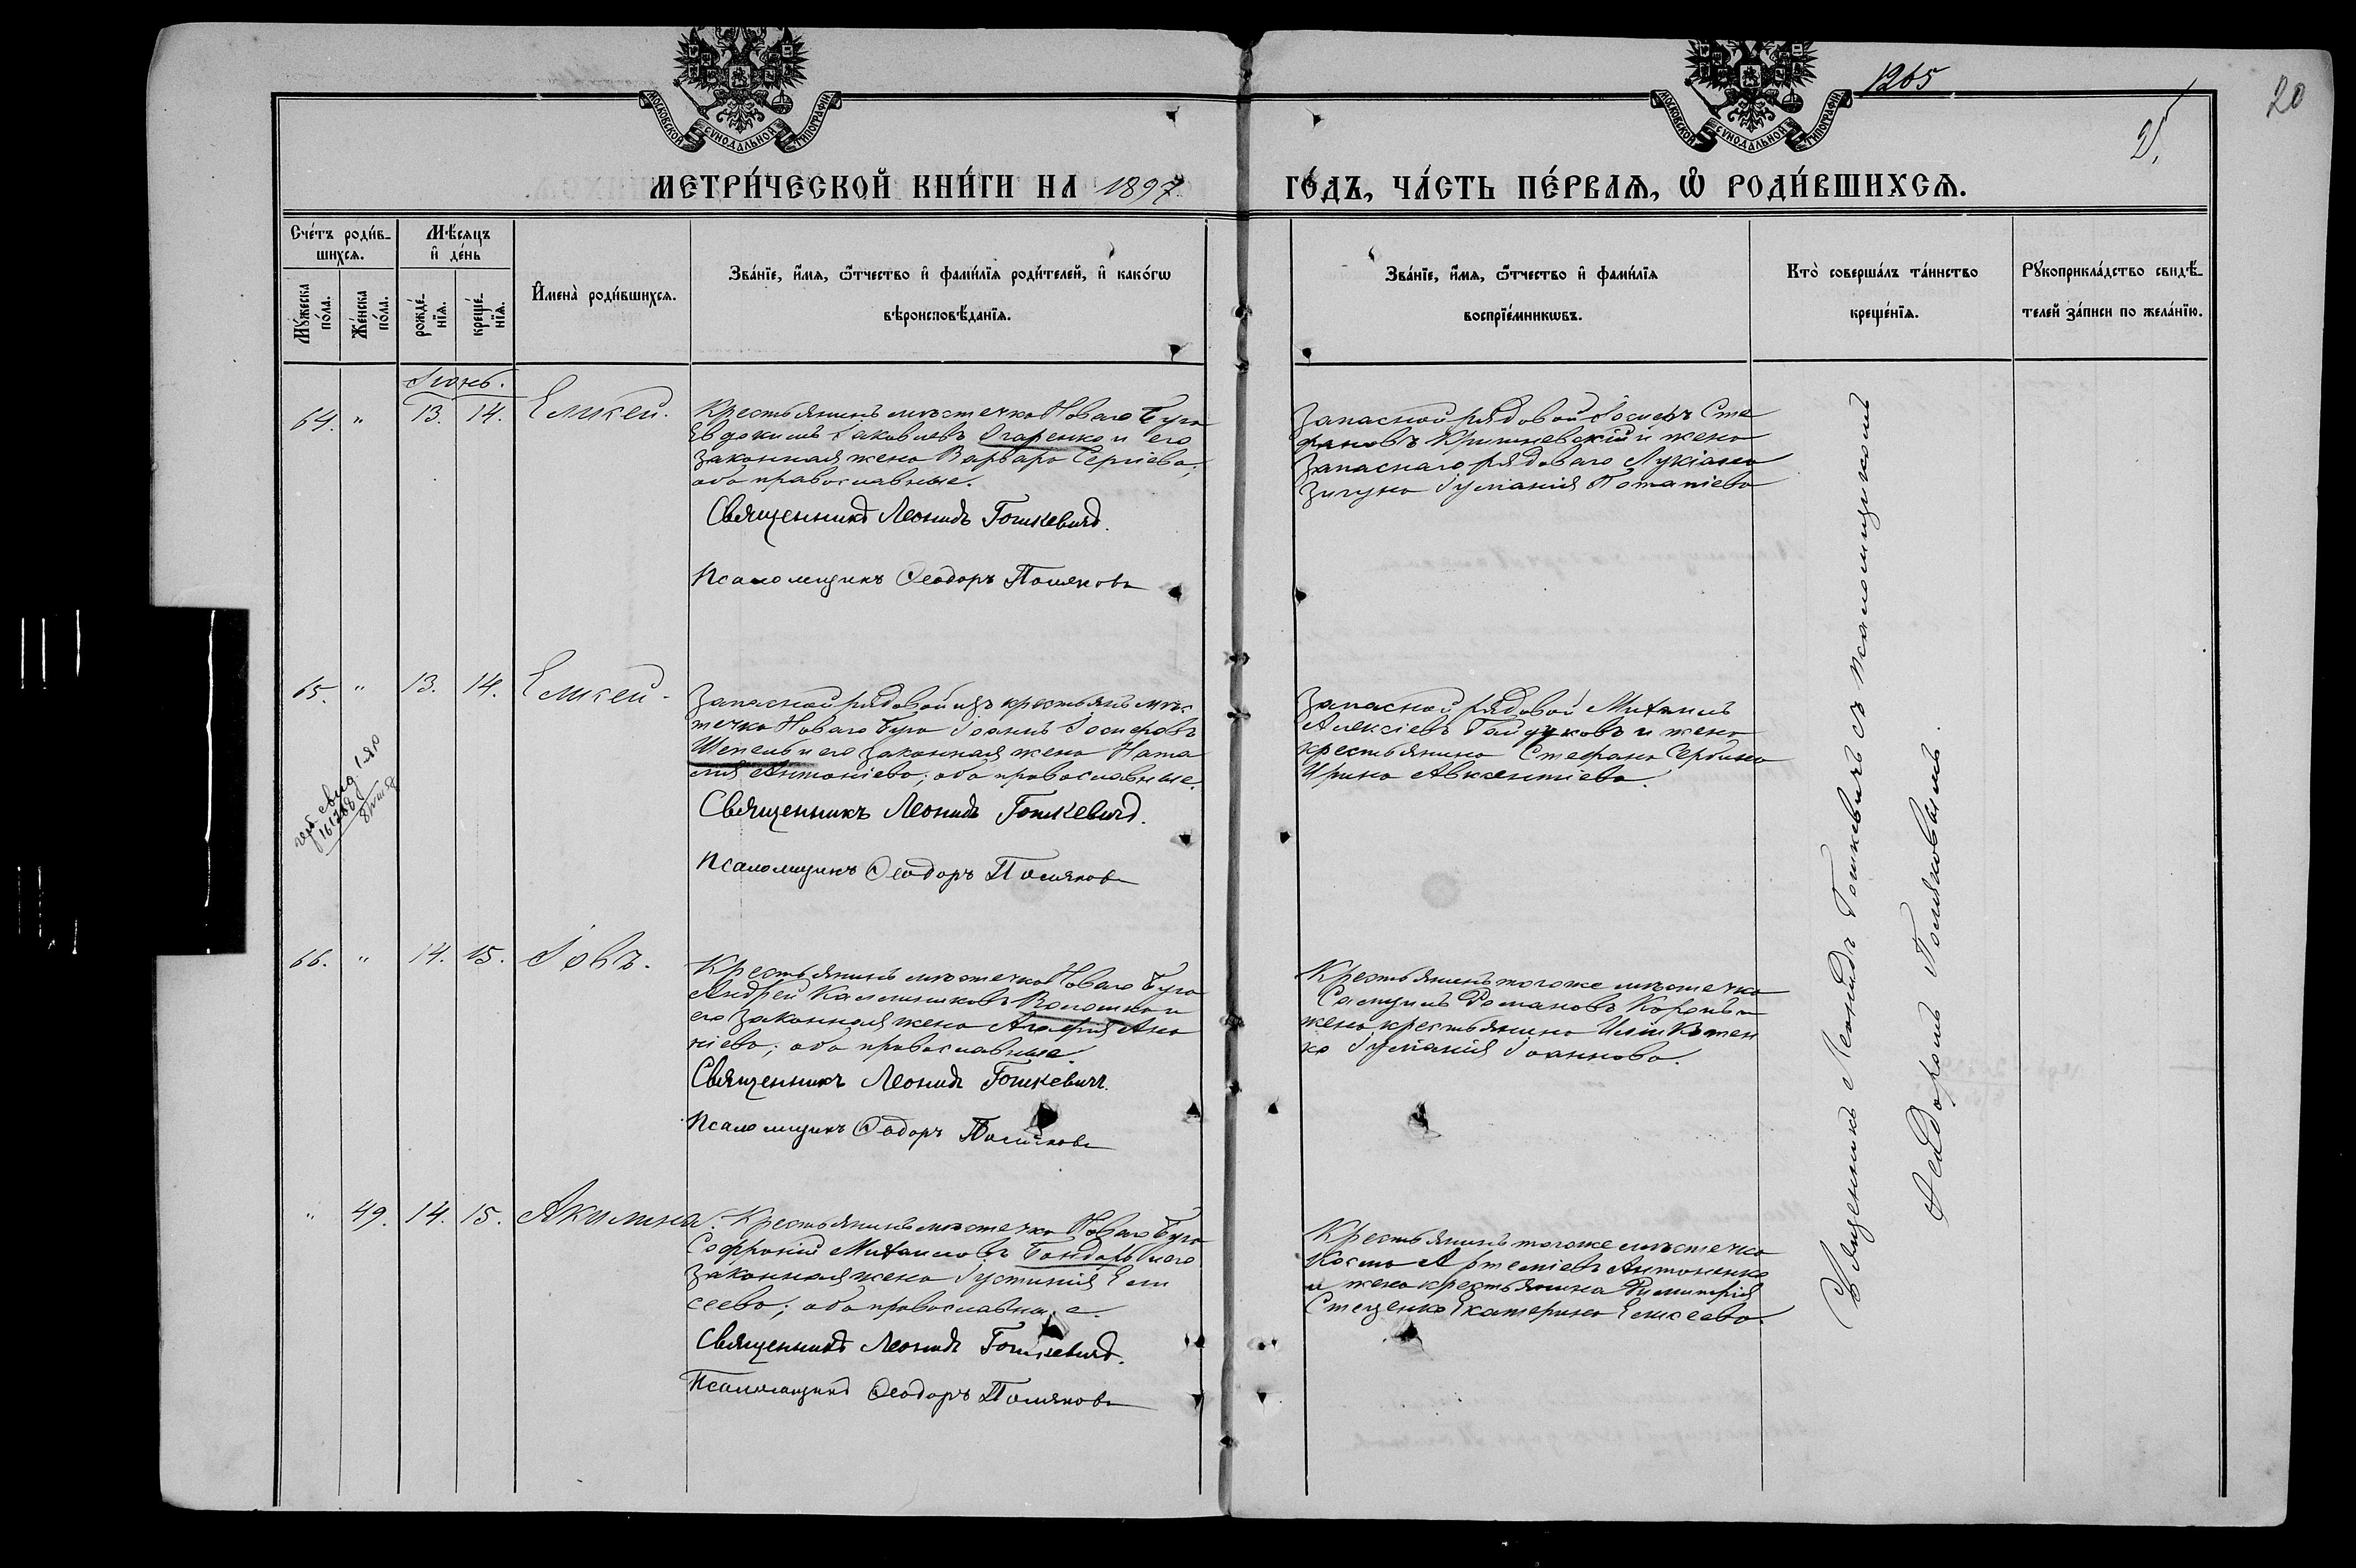 1265
20
МОСКОВСКОЙ СѴНОДАЛЬНОЙ ТИПОГРАФІИ
МОСКОВСКОЙ СѴНОДАЛЬНОЙ ТИПОГРАФІИ
МЕТРИ́ЧЕСКОЙ КНИ́ГИ НА 1897 ГО́ДЪ, ЧА́СТЬ ПЕ́РВАѦ, Ѡ҆ РОДИ́ВШИХСѦ.
Сче́тъ роди́в-
шихсѧ.
Мꙋ́жеска по́ла.
Же́нска по́ла.
Мѣ́сѧцъ
и҆ де́нь
рожде́-
нїѧ.
креще́-
нїѧ.
И҆мена̀ роди́вшихсѧ.
Зва́нїе, и҆́мѧ, ѻ҆́тчество и҆ фами́лїѧ роди́телей, и҆ како́гѡ
вѣроисповѣ́данїѧ.
Зва́нїе, и҆́мѧ, ѻ҆́тчество и҆ фами́лїѧ
воспрїе́мникѡвъ.
Кто̀ соверша́лъ та́инство
креще́нїѧ.
Рꙋкоприкла́дство свидѣ́-
телей за́писи по жела́нїю.
Іюнь.
64. " 13. 14. Елисей.
Крестьянинъ мѣстечка Новаго Буга
Евдокимъ Іаковлевъ Огаренко и его
законная жена Варвара Сергіева;
оба православные.
Священникъ Леонидъ Гошкевичъ.
Псаломщикъ Ѳеодоръ Поляковъ
Запасной рядовой Іосифъ Сте
фановъ Кришневскій и жена
запаснаго рядоваго Лукіана
Зигуна Іуліанія Потапіева
65. " 13. 14. Елисей.
Запасной рядовой изъ крестьянъ мѣс
течка Новаго Буга Іоаннъ Іосифовъ
Шепель и его законная жена Ната
лія Антоніева; оба православные.
Священникъ Леонидъ Гошкевичъ.
Псаломщикъ Ѳеодоръ Поляковъ
Запасной рядовой Михаилъ
Алексіевъ Гайдуковъ и жена
крестьянина Стефана Сербина
Ирина Авксентіева.
66. " 14. 15. Іовъ.
Крестьянинъ мѣстечка Новаго Буга
Андрей Каллиниковъ Волошко и
его законная жена Агафія Ана
ніева; оба православные.
Священникъ Леонидъ Гошкевичъ.
Псаломщикъ Ѳеодоръ Поляковъ
Крестьянинъ того же мѣстечка
Самуилъ Романовъ Король и
жена крестьянина Иліи Котен
ко Іуліанія Іоаннова.
" 49. 14. 15. Акилина.
Крестьянинъ мѣстечка Новаго Буга
Софроній Михаиловъ Бондарь и его
законная жена Іустинія Ели
сеева; оба православные.
Священникъ Леонидъ Гошкевичъ.
Псаломщикъ Ѳеодоръ Поляковъ
Крестьянинъ того же мѣстечка
Косма Артеміевъ Антоненко
и жена крестьянина Димитрія
Стеценко Екатерина Елисеева.
Священникъ Леонидъ Гошкевичъ съ псаломщикомъ
Ѳеодоромъ Поляковымъ.